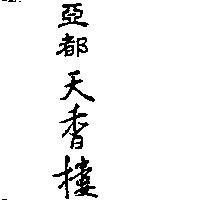 亞都天香樓